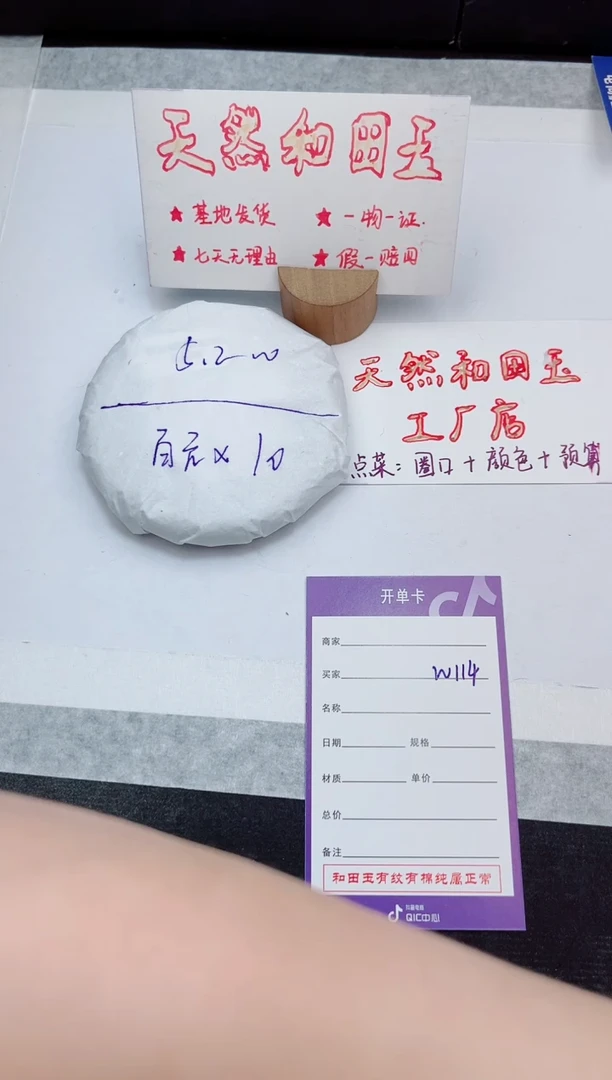 天然和田玉
★ 基地发货 ★ 一物一证.
★ 七天无理由 ★ 假一赔四
5.2
百元x 10
天然和田玉
工厂店
点菜: 圈口 + 颜色 + 预算
开单卡
商家
买家 W114
名称
日期 规格
材质 单价
总价
备注
和田玉有纹有棉纯属正常
抖音电商
QIC中心